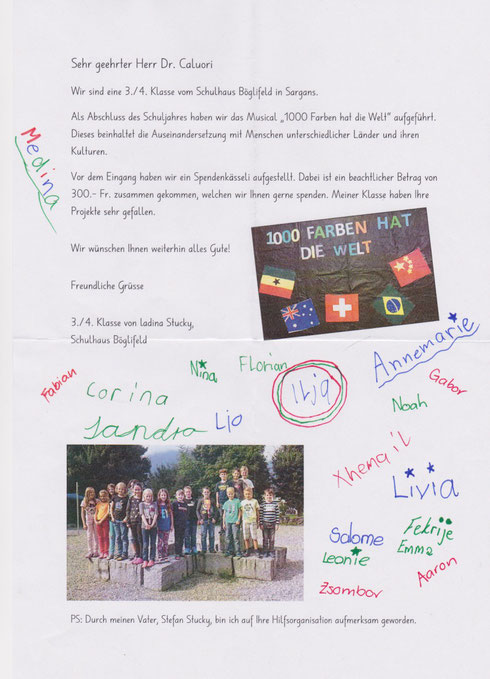 Sehr geehrter Herr Dr. Caluori
Wir sind eine 3./4. Klasse vom Schulhaus Böglifeld in Sargans.
Als Abschluss des Schuljahres haben wir das Musical „1000 Farben hat die Welt" aufgeführt.
Dieses beinhaltet die Auseinandersetzung mit Menschen unterschiedlicher Länder und ihren
Kulturen.
Vor dem Eingang haben wir ein Spendenkässeli aufgestellt. Dabei ist ein beachtlicher Betrag von
300.- Fr. zusammen gekommen, welchen wir Ihnen gerne spenden. Meiner Klasse haben Ihre
Projekte sehr gefallen.
Wir wünschen Ihnen weiterhin alles Gute!
Freundliche Grüsse
3./4. Klasse von ladina Stucky,
Schulhaus Böglifeld
Medina
1000 FARBEN HAT
DIE WELT
Fabian
Corina
Sandra
Nina
Florian
Ljo
Ilja
Annemarie
Gabor
Noah
Xhemail
Livia
Salome
Leonie
Fekrije
Emma
Zsombor
Aaron
PS: Durch meinen Vater, Stefan Stucky, bin ich auf Ihre Hilfsorganisation aufmerksam geworden.